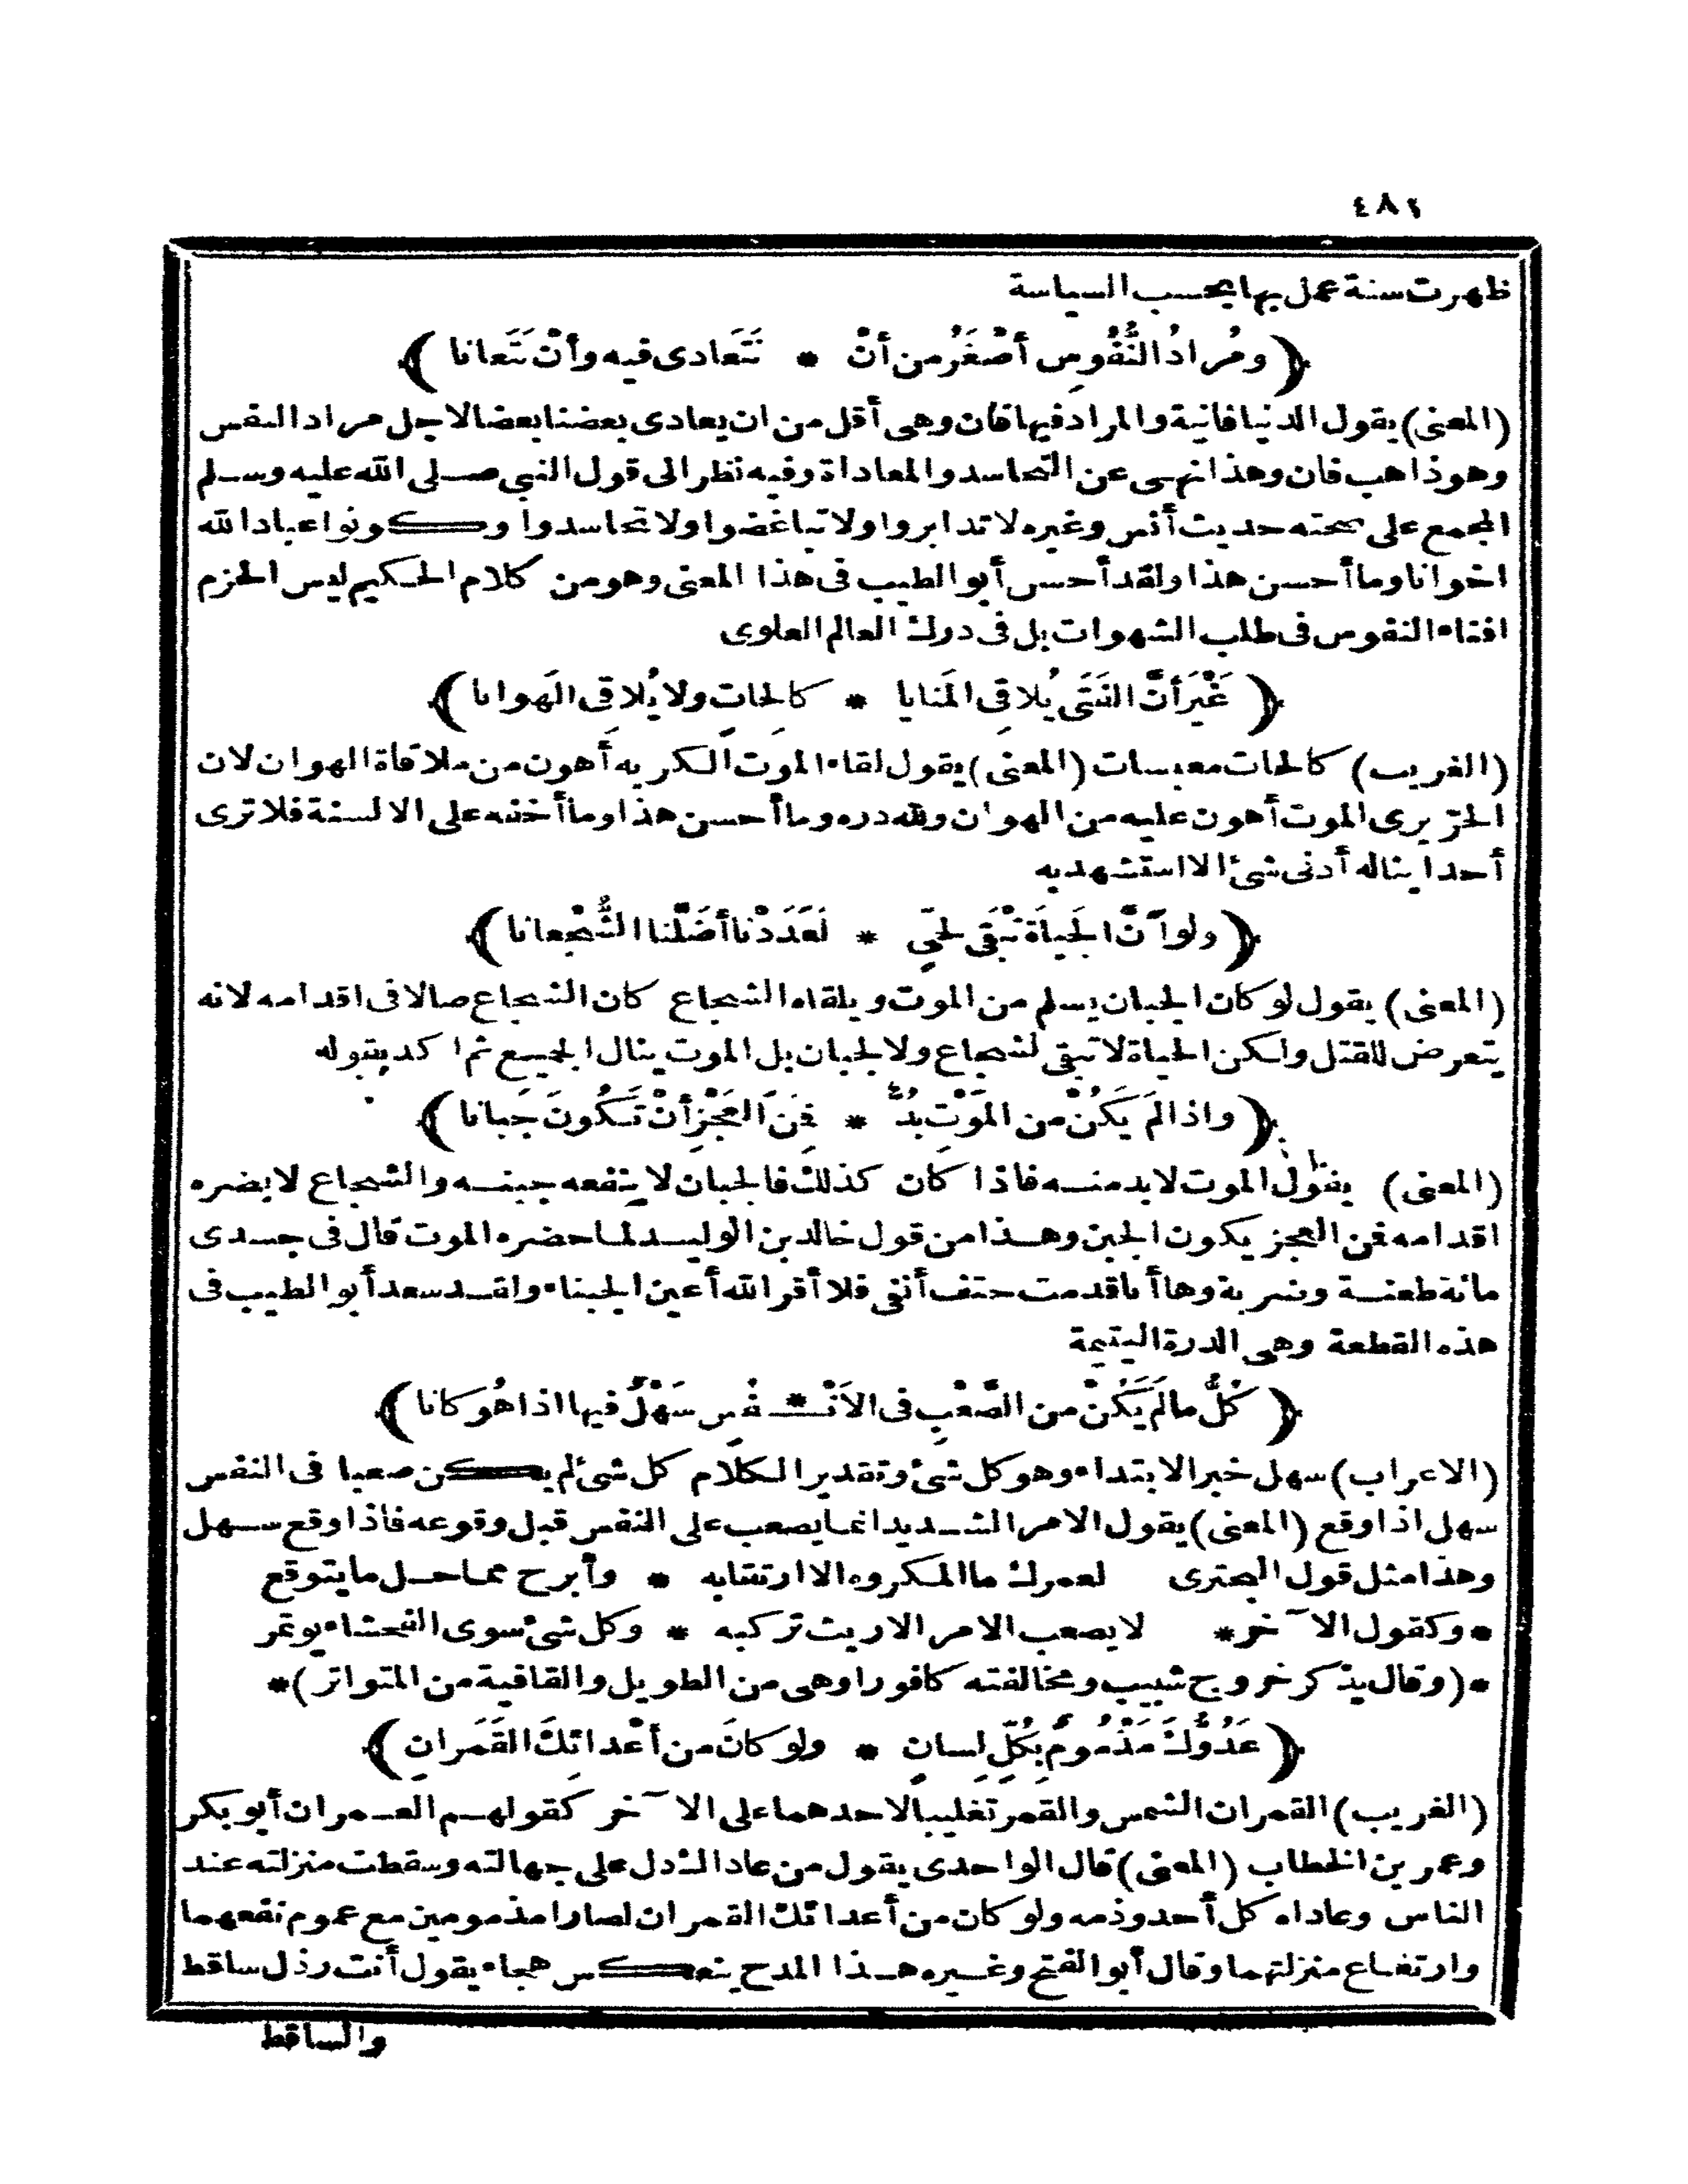 ٤٨٢
ظهرت سنة عمل بها بحسب السياسة
﴿ ومُرادُ النُّفُوسِ أصْغَرُ من أنْ * نَتَعادى فيه وأنْ نَتَعانا ﴾
(المعنى) يقول الدنيا فانية والمراد فيها فان وهى أقل من ان يعادى بعضنا بعضا لاجل مراد النفس
وهو ذاهب فان وهذا نهى عن التحاسد والمعاداة وفيه نظر الى قول النبى صلى الله عليه وسلم
المجمع على صحته حديث أنس وغيره لا تدابروا ولا تباغضوا ولا تحاسدوا وكونوا عباد الله
اخوانا وما أحسن هذا ولقد أحسن أبو الطيب فى هذا المعنى وهو من كلام الحكيم ليس الحزم
افناء النفوس فى طلب الشهوات بل فى درك العالم العلوى
﴿ غَيْرَ أنَّ الفَتَى يُلاقِى المَنايا * كالحاتٍ ولا يُلاقِى الهَوانا ﴾
(الغريب) كالحات معبسات (المعنى) يقول لقاء الموت الكريه أهون من ملاقاة الهوان لان
الحرّ يرى الموت أهون عليه من الهوان ولله دره وما أحسن هذا وما أخفه على الالسنة فلا ترى
أحدا يناله أدنى شئ الا استشهد به
﴿ ولو أنَّ الحَياةَ تَبْقَى لحَىٍّ * لَعَدَدْنا أضَلَّنا الشُّجْعانا ﴾
(المعنى) يقول لو كان الجبان يسلم من الموت ويلقاه الشجاع كان الشجاع ضالا فى اقدامه لانه
يتعرض للقتل ولكن الحياة لا تبقى لشجاع ولا لجبان بل الموت ينال الجميع ثم أكد بقوله
﴿ واذا لمَ يَكُنْ من المَوْتِ بُدٌّ * فِمَنَ العَجْزِ أنْ تَكُونَ جَبانا ﴾
(المعنى) يقول الموت لا بد منه فاذا كان كذلك فالجبان لا ينفعه جبنه والشجاع لا يضره
اقدامه فمن العجز يكون الجبن وهذا من قول خالد بن الوليد لما حضره الموت قال فى جسدى
مائة طعنة وضربة وها أنا قدمت حتف أنفى فلا أقر الله أعين الجبناء ولقد سعد أبو الطيب فى
هذه القطعة وهى الدرة اليتيمة
﴿ كُلُّ ما لَمَ يَكُنْ من الصَّعْبِ فى الاَنْـ * ـفُسِ سَهْلٌ فيها اذا هُوَ كانا ﴾
(الاعراب) سهل خبر الابتداء وهو كل شئ وتقدير الكلام كل شئ لم يكن صعبا فى النفس
سهل اذا وقع (المعنى) يقول الامر الشديد انما يصعب على النفس قبل وقوعه فاذا وقع سهل
وهذا مثل قول البحترى لعمرك ما المكروه الا ارتقابه * وأبرح مما حل ما يتوقع
* وكقول الآخر * لا يصعب الامر الا ريث تركبه * وكل شئ سوى الفحشاء يوتمر
* (وقال يذكر خروج شبيب ومخالفته كافورا وهى من الطويل والقافية من المتواتر) *
﴿ عَدُوُّكَ مَذْمُومٌ بكُلِّ لسانِ * ولو كانَ من أعْدائِكَ القَمَرانِ ﴾
(الغريب) القمران الشمس والقمر تغليبا لاحدهما على الآخر كقولهم العمران أبو بكر
وعمر بن الخطاب (المعنى) قال الواحدى يقول من عاداك دل على جهالته وسقطت منزلته عند
الناس وعاداه كل أحد وذمه ولو كان من أعدائك القمران لصارا مذمومين مع عموم نفعهما
وارتفاع منزلتهما وقال أبو الفتح وغيره هذا المدح ينعكس هجاء يقول أنت رذل ساقط
والساقط